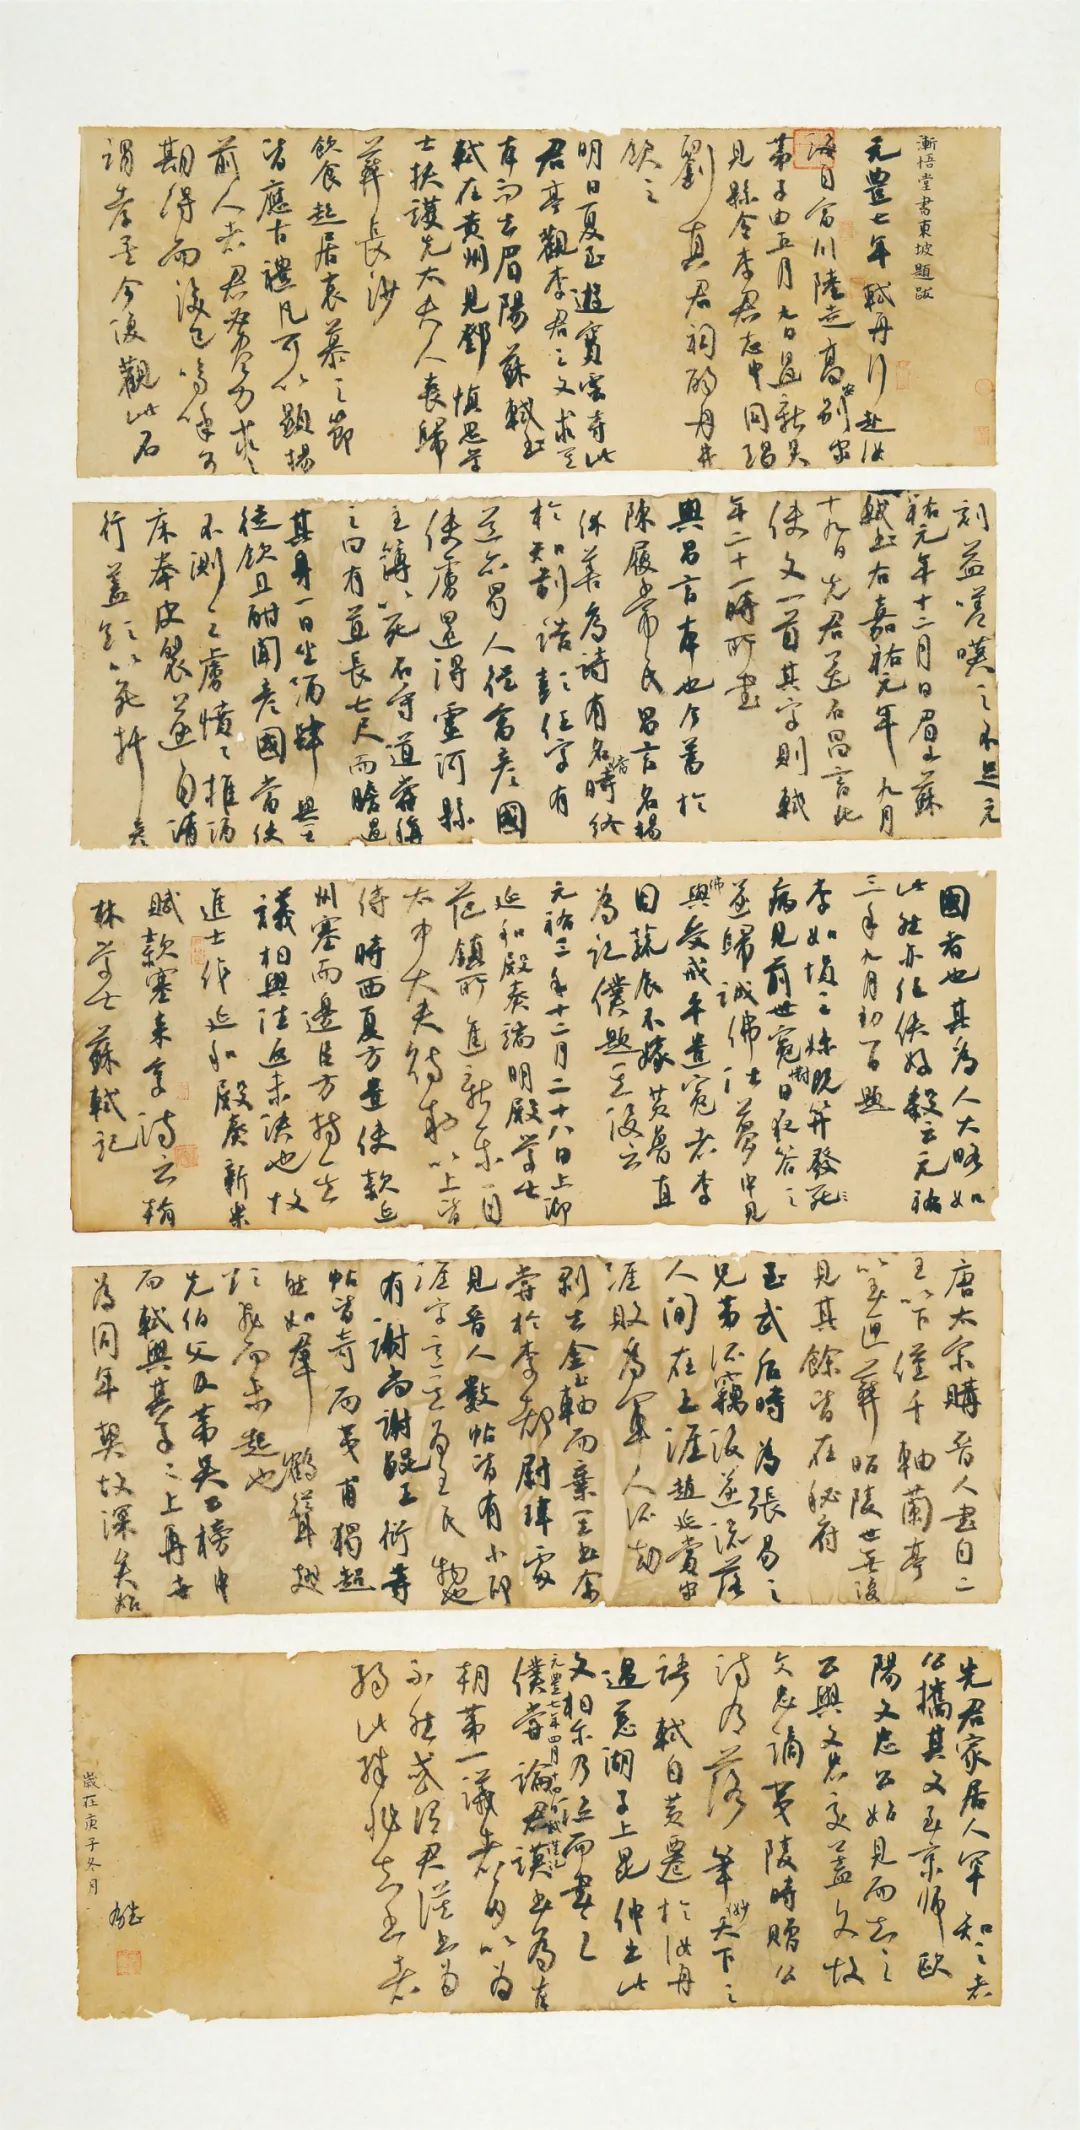 漸悟堂書東坡題跋
元豐七年軾舟行赴汝
海自富川陸走高安別家
弟子由五月九日過新吳
見縣令李君志中同謁
劉真君祠酌丹井
飲之
明日夏至遊寶雲寺此
君亭觀李君之文求其
本而去眉陽蘇軾書
軾在黃州見鄧慎思學
士扶護先太夫人喪歸
葬長沙
飲食起居哀慕之節
皆應古禮凡可以顯揚
前人者君盡力求之
期得而後已嗚呼可
謂孝矣今復觀此石
刻益嗟嘆之不足元
祐元年十二月日眉山蘇
軾書右嘉祐元年九月
十九日先君送石昌言北
使文一首其字則軾
年二十一時所書
與昌言本也今蓄於
陳履常氏昌言名揚
休善為詩有名當時終
於知制誥彭任字有
道亦蜀人從富彥國
使虜還得靈河縣
主簿以死石守道嘗稱
之曰有道長七尺而膽過
其身一日坐酒肆與其
徒飲且酣聞彥國當使
不測之虜憤憤推酒
床拳皮裂遂自請
行蓋欲以死捍彥
國者也其為人大略如
此然亦任俠好殺云元祐
三年九月初一日題
李如塤之妹既笄發死
病見前世冤對日夜笞之
遂歸誠佛法夢中見
佛與受戒平遣冤者李
因蔬衣不嫁黃魯直
為記僕題其後云
元祐三年十二月二十八日上御
延和殿奏端明殿學士
范鎮所進新樂一月
太中大夫待制以上皆
侍時西夏方遣使款延
州塞而邊臣方持其
議相與往返未決也故
進士作延和殿奏新樂
賦款塞來享詩云翰
林學士蘇軾記
唐太宗購晉人書自二
王以下僅千軸蘭亭
以玉匣葬昭陵世無復
見其餘皆在秘府
至武后時為張易之
兄弟所竊後遂流落
人間在王涯張延賞家
涯敗為軍人所劫
剝去金玉軸而棄其書余
嘗於李都尉瑋處
見晉人數帖皆有小印
涯字意其為王氏物也
有謝尚謝鯤王衍等
帖皆奇而夷甫獨超
然如群鶴聳翅
欲飛而未起也
先伯父及第吳公榜中
而軾與其子子上再世
為同年契故深矣始
先君家居人罕知之者
公攜其文至京師歐
陽文忠公始見而知之
公與文忠交蓋久故
文忠謫夷陵時贈公
詩有落筆妙天下之
語軾自黃遷於汝舟
過慈湖子上昆仲出此
文相示乃泣而書之
元豐七年四月十四日軾謹記
僕嘗論君謨書為本
朝第一議者多以為
不然或謂君謨書為
弱此殊非知書者
歲在庚子冬月